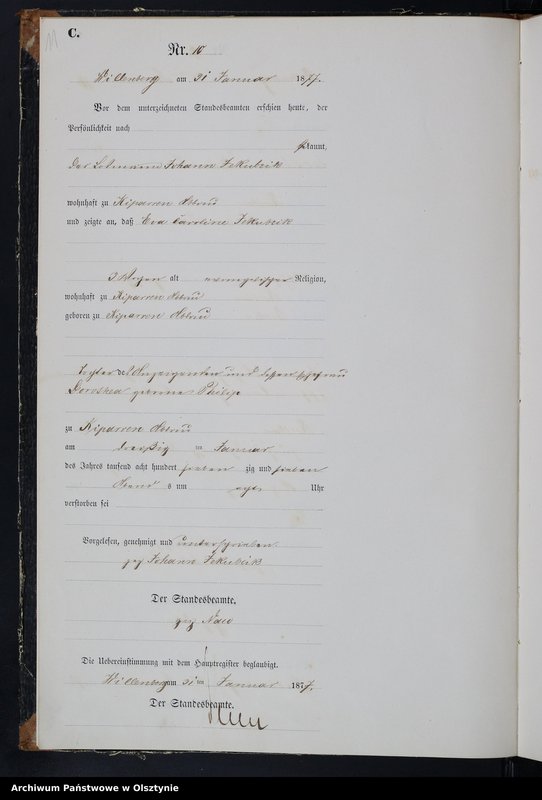 C.
11
Nr. 10
Willenberg am 31 Januar 1877.
Vor dem unterzeichneten Standesbeamten erschien heute, der
Persönlichkeit nach
kannt,
der Johann Jekubzik
wohnhaft zu Kiparren
und zeigte an, daß Eva Caroline Jekubzik
3 Wochen alt evangelischer Religion,
wohnhaft zu Kiparren
geboren zu Kiparren
Tochter des Anzeigenden und dessen Ehefrau
Dorothea geborene Philipp
zu Kiparren
am dreißig ten Januar
des Jahres tausend acht hundert sieben zig und sieben
Abend s um acht Uhr
verstorben sei
Vorgelesen, genehmigt und unterschrieben.
gez Johann Jekubzik
Der Standesbeamte.
gez
Die Uebereinstimmung mit dem Hauptregister beglaubigt.
Willenberg am 31 ten Januar 1877.
Der Standesbeamte.
Archiwum Państwowe w Olsztynie